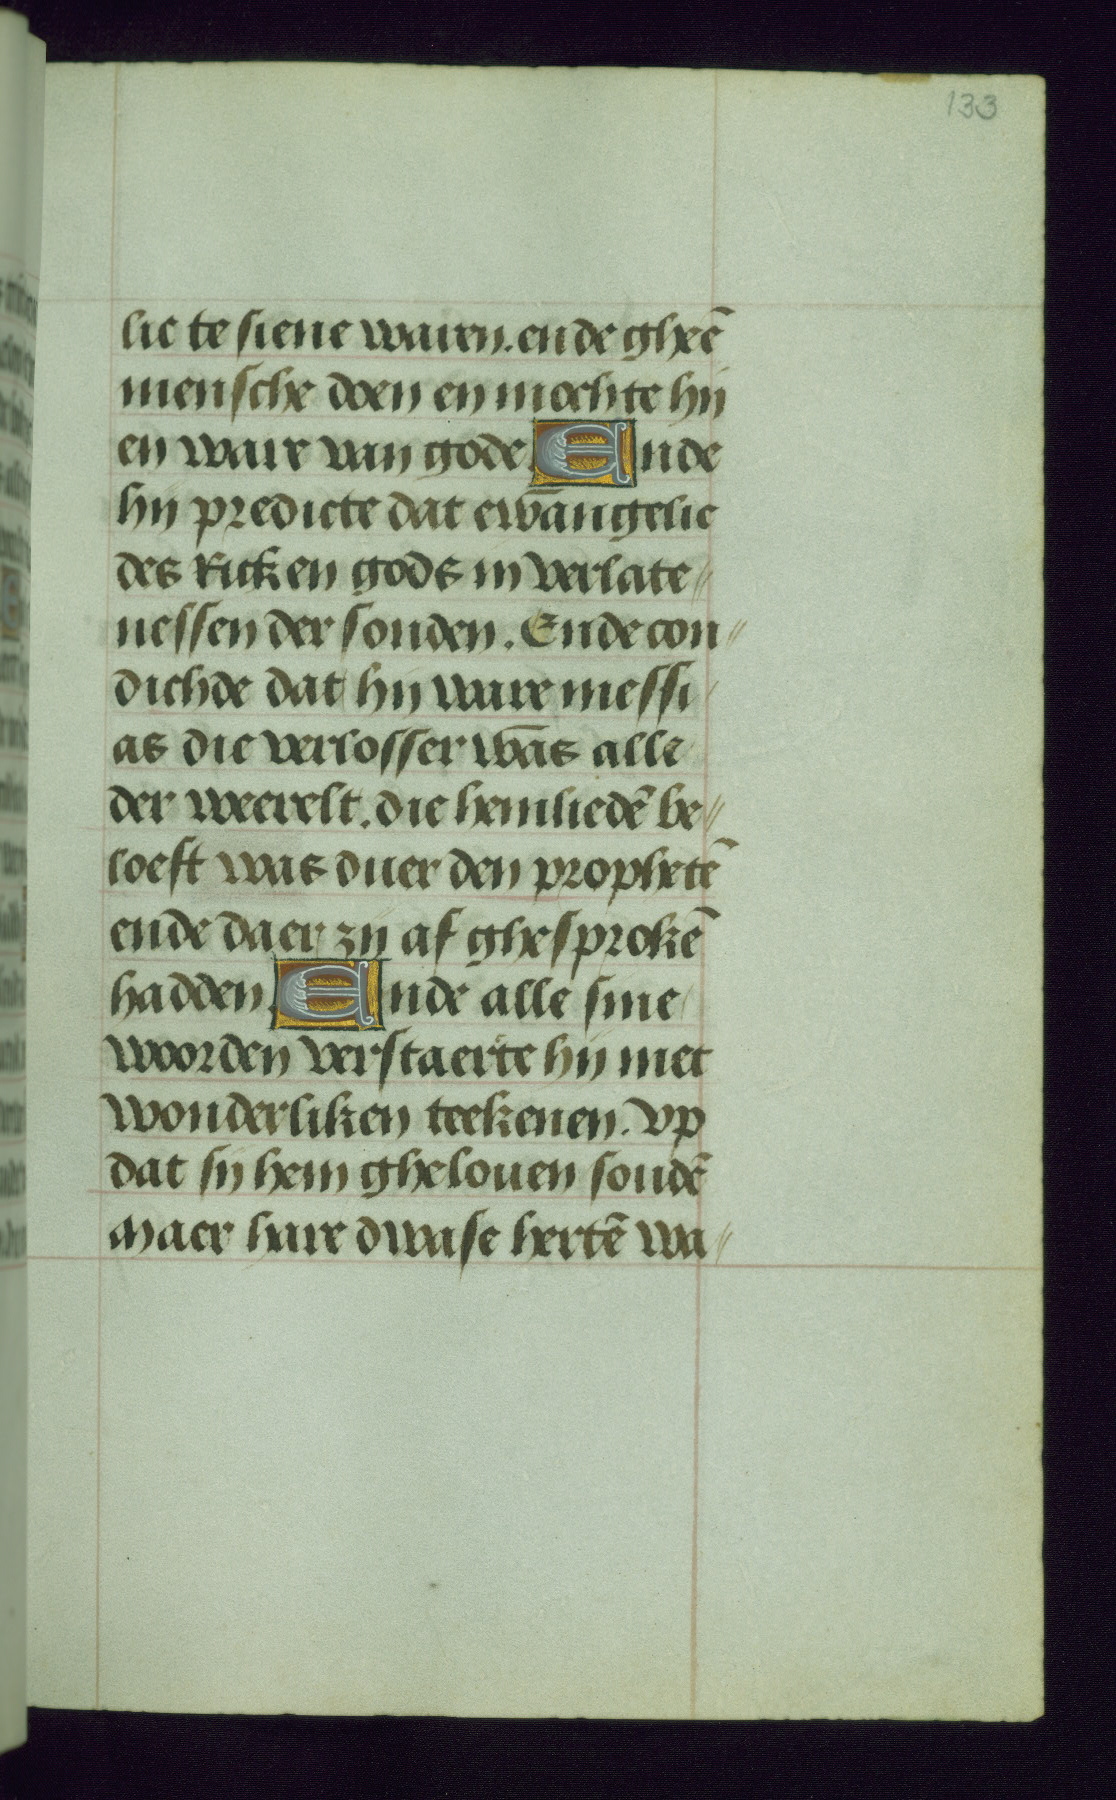 133
lic te siene waren. ende gheē
mensche doen en mochte hij
en ware van gode. Ende
hij predicte dat ewāngelie
des ricken gods in verlate〃
nessen der sonden. Ende con〃
dichde dat hij ware messi〃
as die verlosser wās alle
der weerelt. die hemliedē be〃
loeft was duer den prophetē
ende daer zij af ghesprokē
hadden. Ende alle sine
woorden verstaerte hij met
wonderliken teekenen. Vp
dat sij hem ghelouen soudē
Maer hare dwase hertē wa〃